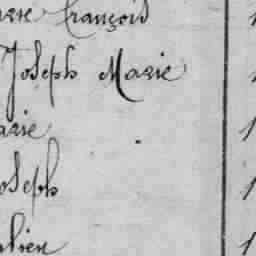 François
Joseph Marie
arie
oseph